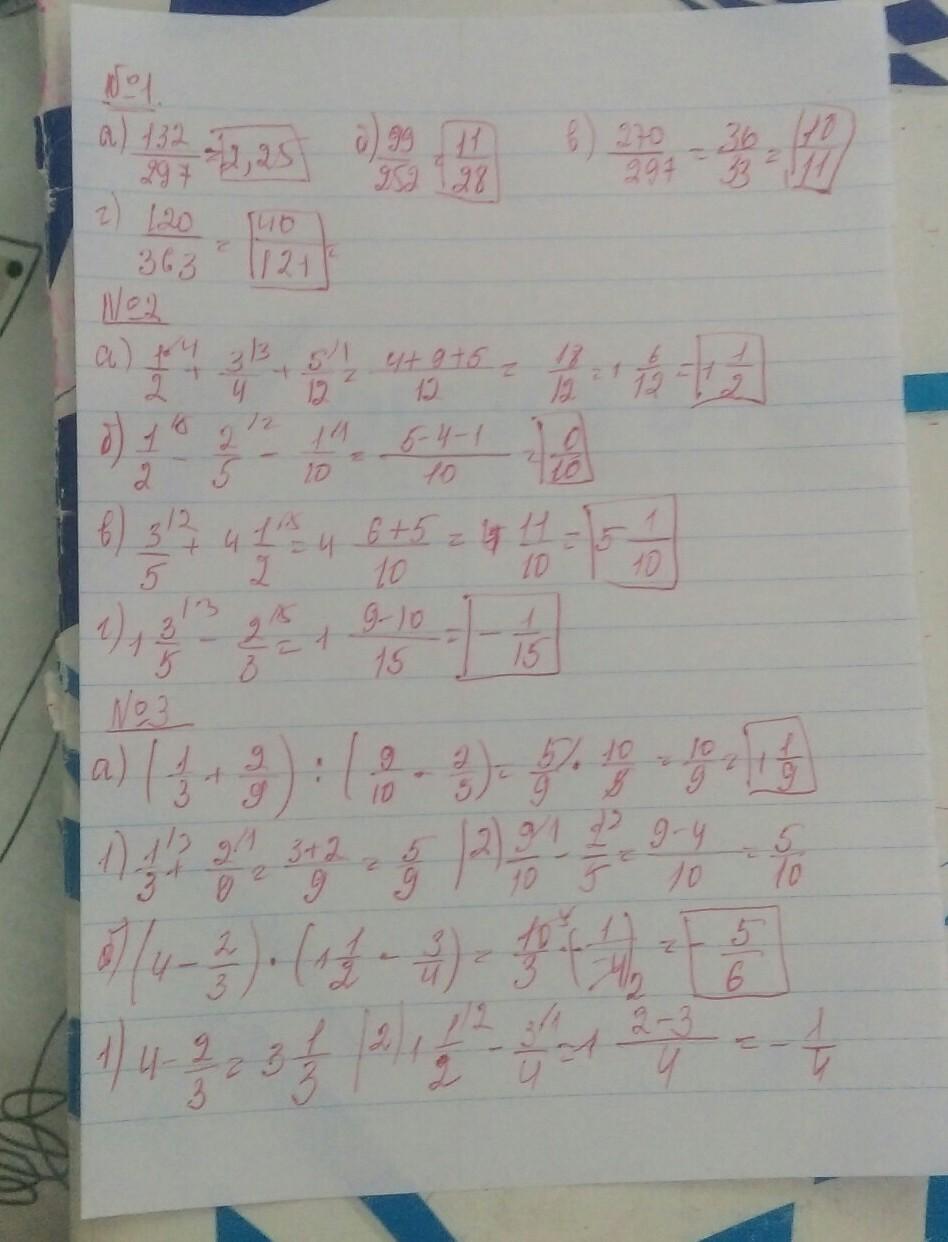 №1.
а) 132/297 = 2,25 б) 99/252 = 11/28 в) 270/297 = 36/33 = 18/11
г) 120/363 = 40/121 =
№2
а) 1/2 + 3/4 + 5/12 = 4+9+5/12 = 18/12 = 1 6/12 = 1 1/2
б) 1/2 - 2/5 - 1/10 = 5-4-1/10 = 0/10
в) 3/5 + 4 1/2 = 4 6+5/10 = 4 11/10 = 5 1/10
г) 1 3/5 - 2/3 = 1 9-10/15 = - 1/15
№3
а) (1/3 + 2/9) : (9/10 - 2/5) = 5/9 · 10/5 = 10/9 = 1 1/9
1) 1/3 + 2/9 = 3+2/9 = 5/9 | 2) 9/10 - 2/5 = 9-4/10 = 5/10
б) (4 - 2/3) · (1 1/2 - 3/4) = 10/3 · (- 1/4) = - 5/6
1) 4 - 2/3 = 3 1/3 | 2) 1 1/2 - 3/4 = 1 2-3/4 = - 1/4